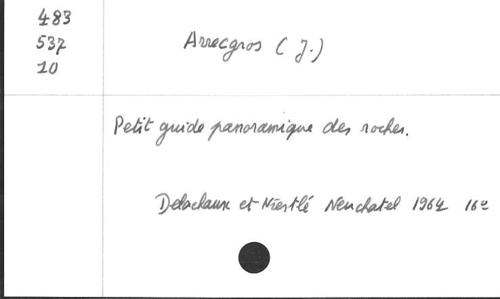 483
537
10
Arrecgros (J.)
Petit guide panoramique des roches.
Delachaux et Niestlé Neuchatel 1964 16e